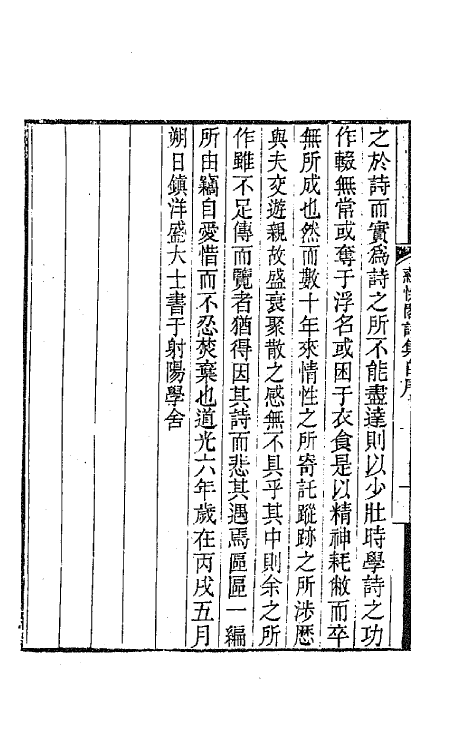 之於詩而實爲詩之所不能盡達則以少壯時學詩之功
作輟無常或奪于浮名或困于衣食是以精神耗敝而卒
無所成也然而數十年來情性之所寄託蹤跡之所涉歴
與夫交遊親故盛衰聚散之感無不具乎其中則余之所
作雖不足傳而覽者猶得因其詩而悲其遇焉區區一編
所由竊自愛惜而不忍焚棄也道光六年歲在丙戌五月
朔日鎮洋盛大士書于射陽學舍